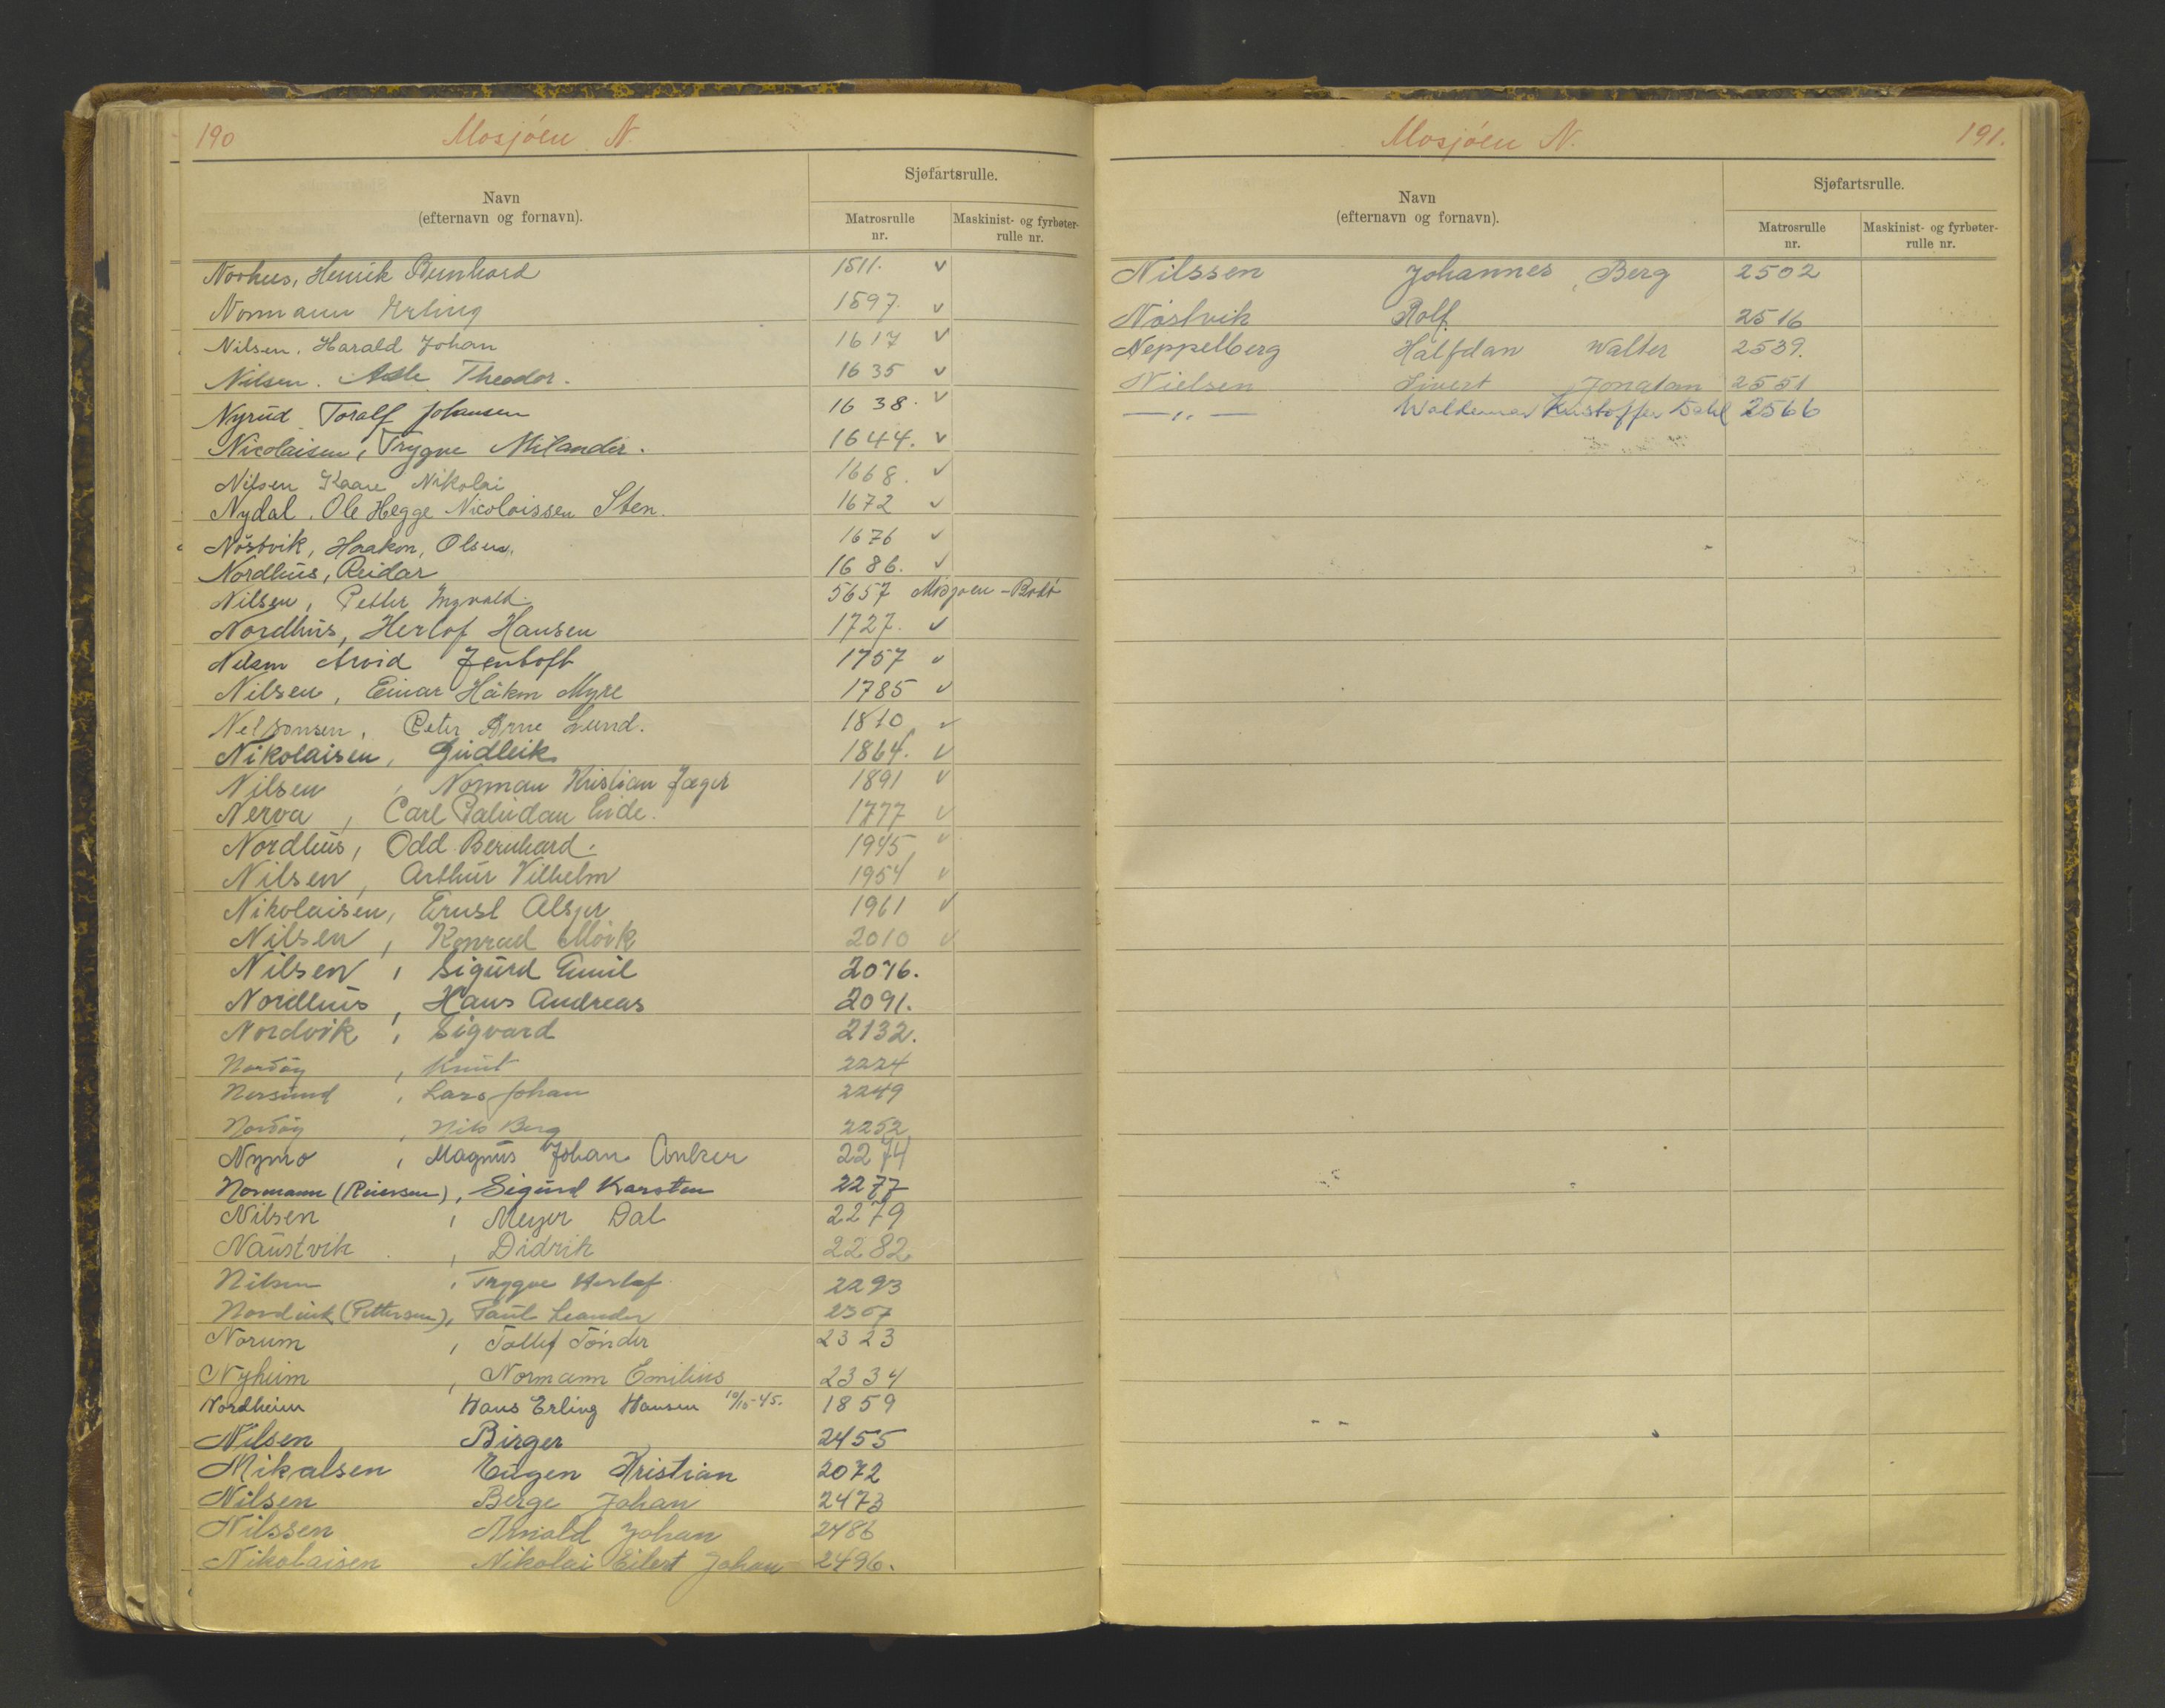 190 Mosjøen N.
Sjøfartsrulle.
Navn
(efternavn og fornavn).
Matrosrulle nr.
Maskinist- og fyrbøter-rulle nr.
Norhus, Henrik Bernhard 1511. ✓
Normann Erling 1597. ✓
Nilsen, Harald Johan 1617 ✓
Nilsen. Theodor. 1635 ✓
Nyrud Toralf Johansen 1638. ✓
Nicolaisen, Trygve Milander. 1644. ✓
Nilsen Kaare Nikolai 1668. ✓
Nydal, Ole Hegge Nicolaissen Sten. 1672 ✓
Nöstvik, Haakon, Olsen. 1676 ✓
Nordhus, Reidar 1686. ✓
Nilsen, Petter Ingvald. 5657 Mosjøen - Bodö
Nordhus, Herlof Hansen 1727. ✓
Nilsen Arvid Jentoft 1757 ✓
Nilsen, Einar Håkon Myre 1785 ✓
Nelsonsen, Peter Arne Lund. 1810 ✓
Nikolaisen, Gudleik 1864. ✓
Nilsen, Norman Kristian Jæger 1891 ✓
Nerva, Carl Paludan Eide. 1777 ✓
Nordhus, Odd Bernhard. 1945 ✓
Nilsen, Arthur Vilhelm 1954 ✓
Nikolaisen, Ernst 1961 ✓
Nilsen, Konrad Mörk 2010 ✓
Nilsen, Sigurd Emil 2076.
Nordhus, Hans Andreas 2091.
Nordvik, Sigvard 2132.
Nordöy, Knut 2224
Nersund, Lars Johan 2249
Nordöy, Nils Berg 2252
Nymo, Magnus Johan 2274
Normann (Reiersen), Sigurd Karsten 2277
Nilsen, Meyer Dal 2279
Naustvik, Didrik 2282
Nilsen, Trygve Herlof 2293
Nordvik (Pettersen), Paul Leander 2307
Norum, Tollef Tönder 2323
Nyheim, Normann Emilius 2334
Nordheim Hans Erling Hansen 10/10-45. 1859
Nilsen Birger 2455
Mikalsen Eugen Kristian 2072
Nilsen Berge Johan 2473
Nilssen Arnold Johan 2486
Nikolaisen Nikolai Eilert Johan 2496.
Mosjøen N. 191.
Sjøfartsrulle.
Navn
(efternavn og fornavn).
Matrosrulle nr.
Maskinist- og fyrbøter-rulle nr.
Nilssen Johannes, Berg 2502
Nöstvik Rolf 2516
Neppelberg Halfdan Walter 2539.
Nielsen Sivert Jonatan 2551
—„— Waldemar Kristoffer Dahl 2566